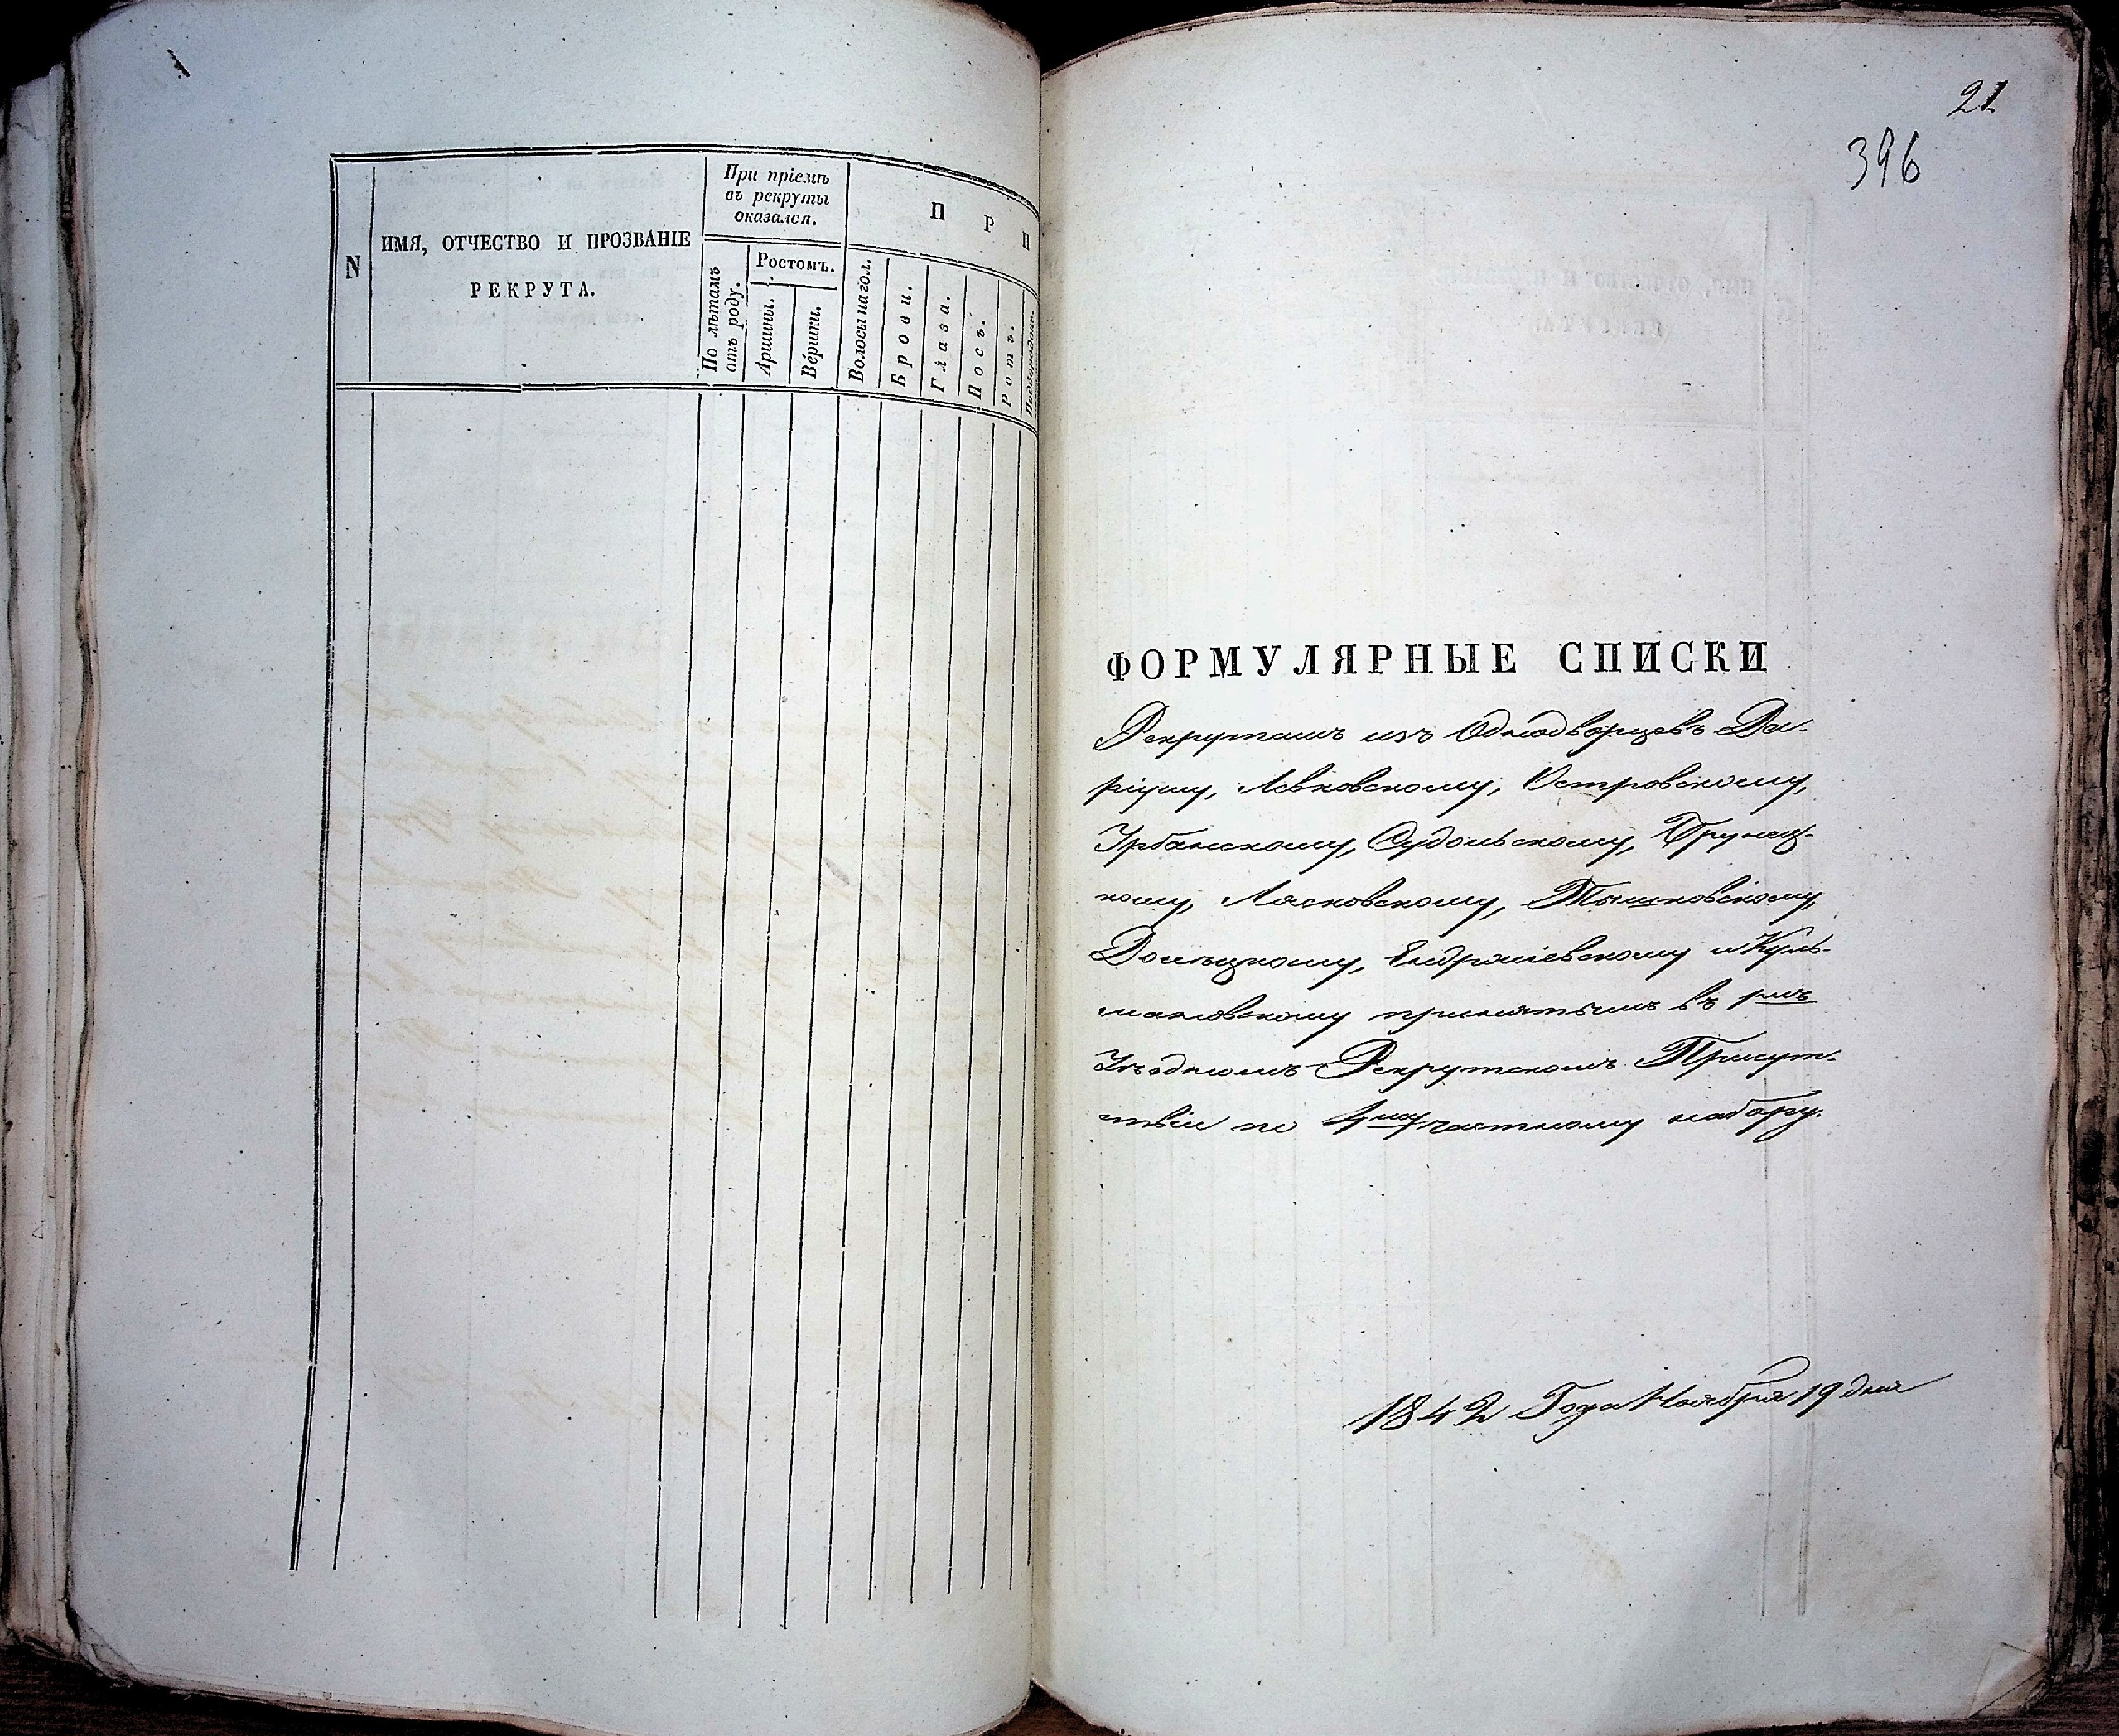 N
ИМЯ, ОТЧЕСТВО И ПРОЗВАНІЕ
РЕКРУТА.
При пріемѣ
въ рекруты
оказался.
По лѣтамъ
отъ роду.
Ростомъ.
Аршины.
Вершки.
П Р И
Волосы на гол.
Брови.
Глаза.
Носъ.
Ротъ.
Подбородокъ.
21
396
ФОРМУЛЯРНЫЕ СПИСКИ
Рекрутамъ изъ Однодворцевъ Да-
ріушу, Левковскому, Островскому,
Урбанскому, Судольскому,
Лясковскому, Тышковскому,
и Куль-
принятымъ въ
Уѣздномъ Рекрутскомъ Присут-
ствіи по 4му частному набору.
1842 Года Ноября 19 дня